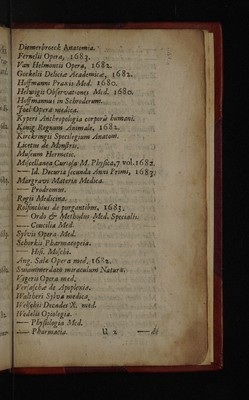 Diemerbroeck Anatomia.
Fernelii Opera, 1683.
Van Helmontii Opera, 1682.
Gockelii Deliciæ Academicæ, 1682.
Hoffmanni Praxis Med. 1680.
Helwigii Observationes Med. 1680.
Hoffmannus in Schroderum.
Joel Opera medica.
Kyperi Anthropologia corporis humani.
König Regnum Animale, 1682.
Kirckringii Specilegium Anatom.
Licetus de Monstris.
Museum Hermetic.
Miscellanea Curiosa M. Physica, 7 vol. 1682.
—— Id. Decuria secunda Anni Primi, 1683.
Margravii Materia Medica.
—— Prodromus.
Regii Medicina.
Rolfinchius de purgantibus, 1683.
—— Ordo & Methodus Med. Specialis.
—— Concilia Med.
Sylvii Opera Med.
Schorkii Pharmacopœia.
—— Hist. Moschi.
Ang. Sala Opera med. 1682.
Swammerdam miraculum Naturæ.
Vigerii Opera med.
Versaschæ de Apoplexia.
Waltheri Sylva medica.
Welschii Decades X. med.
Wedelii Opiologia.
—— Physiologia Med.
—— Pharmacia
U 2
—— de